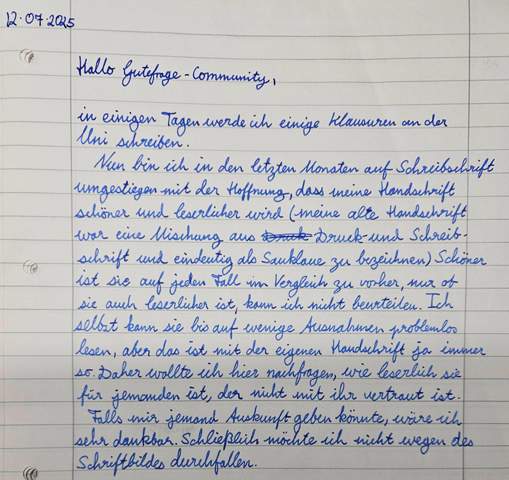 12.07.2025
Hallo Gutefrage-Community,
in einigen Tagen werde ich einige Klausuren an der
Uni schreiben.
Nun bin ich in den letzten Monaten auf Schreibschrift
umgestiegen mit der Hoffnung, dass meine Handschrift
schöner und leserlicher wird (meine alte Handschrift
war eine Mischung aus Druck Druck- und Schreib-
schrift und eindeutig als Sauklaue zu bezeichnen) Schöner
ist sie auf jeden Fall im Vergleich zu vorher, nur ob
sie auch leserlicher ist, kann ich nicht beurteilen. Ich
selbst kann sie bis auf wenige Ausnahmen problemlos
lesen, aber das ist mit der eigenen Handschrift ja immer
so. Daher wollte ich hier nachfragen, wie leserlich sie
für jemanden ist, der nicht mit ihr vertraut ist.
Falls mir jemand Auskunft geben könnte, wäre ich
sehr dankbar. Schließlich möchte ich nicht wegen des
Schriftbildes durchfallen.